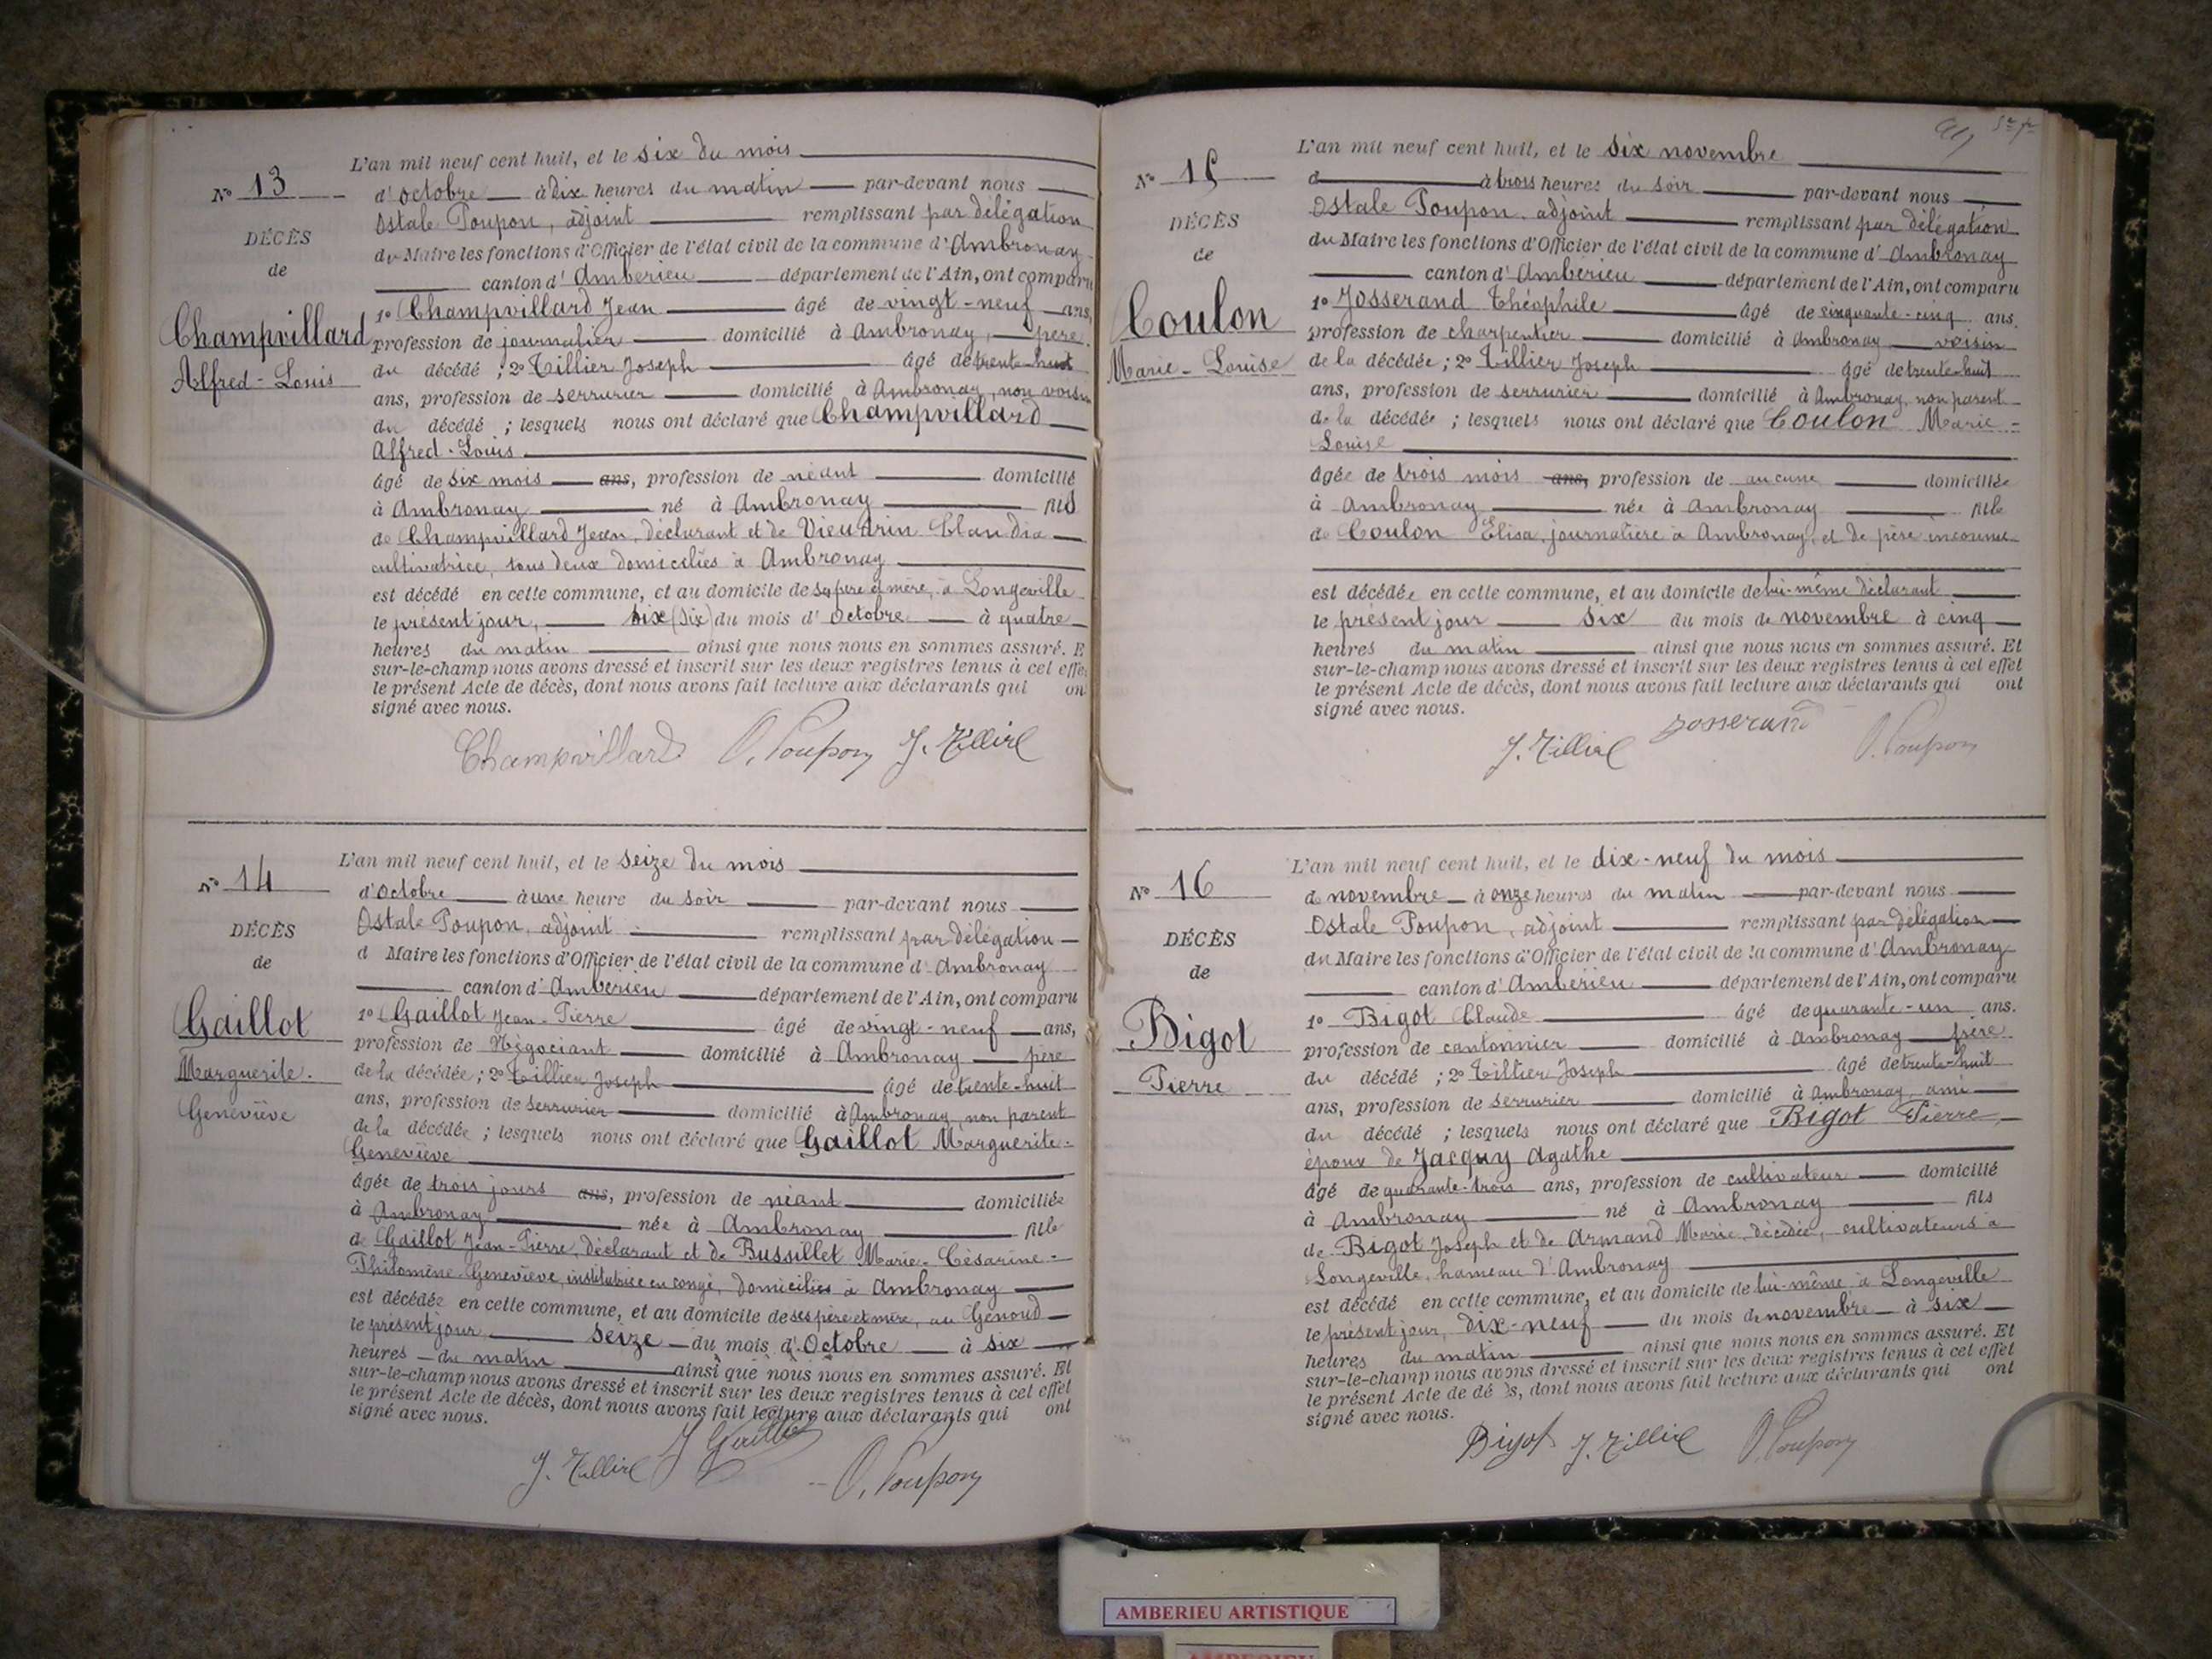 L'an mil neuf cent huit, et le six du mois
N° 13
d'octobre à dix heures du matin par-devant nous
Ostale Poupon, adjoint remplissant par délégation
DÉCÈS
du Maire les fonctions d'Officier de l'état civil de la commune d'Ambronay
de
canton d'Ambérieu département de l'Ain, ont comparu
1° Champvillard Jean âgé de vingt-neuf ans,
Champvillard
profession de journalier domicilié à Ambronay, père
Alfred-Louis
du décédé ; 2° Tillier Joseph âgé de trente-huit
ans, profession de serrurier domicilié à Ambronay, non voisin
du décédé ; lesquels nous ont déclaré que Champvillard
Alfred-Louis
âgé de six mois ans, profession de néant domicilié
à Ambronay né à Ambronay fils
de Champvillard Jean, déclarant et de Vieudrin Claudia
cultivatrice, tous deux domiciliés à Ambronay
est décédé en cette commune, et au domicile de ses père et mère, à Longeville
le présent jour, six (six) du mois d'Octobre à quatre
heures du matin ainsi que nous nous en sommes assuré. E
sur-le-champ nous avons dressé et inscrit sur les deux registres tenus à cet effe
le présent Acte de décès, dont nous avons fait lecture aux déclarants qui on
signé avec nous.
Champvillard O. Poupon J. Tillier
L'an mil neuf cent huit, et le seize du mois
N° 14
d'octobre à une heure du soir par-devant nous
Ostale Poupon, adjoint remplissant par délégation
DÉCÈS
d Maire les fonctions d'Officier de l'état civil de la commune d'Ambronay
de
canton d'Ambérieu département de l'Ain, ont comparu
Gaillot
1° Gaillot Jean-Pierre âgé de vingt-neuf ans,
profession de Négociant domicilié à Ambronay père
Marguerite-
de la décédée ; 2° Tillier Joseph âgé de trente-huit
Geneviève
ans, profession de serrurier domicilié à Ambronay, non parent
de la décédée ; lesquels nous ont déclaré que Gaillot Marguerite-
Geneviève
âgée de trois jours ans, profession de néant domiciliée
à Ambronay née à Ambronay fille
de Gaillot Jean-Pierre, déclarant et de Bussillet Marie-Césarine-
Philomène-Geneviève, institutrice en congé, domiciliés à Ambronay
est décédée en cette commune, et au domicile de ses père et mère, au Genoud
le présent jour seize du mois d'Octobre à six
heures du matin ainsi que nous nous en sommes assuré. Et
sur-le-champ nous avons dressé et inscrit sur les deux registres tenus à cet effet
le présent Acte de décès, dont nous avons fait lecture aux déclarants qui ont
signé avec nous.
J. Tillier J Gaillot O. Poupon
L'an mil neuf cent huit, et le six novembre
N° 15
d à trois heures du soir par-devant nous
DÉCÈS
Ostale Poupon, adjoint remplissant par délégation
du Maire les fonctions d'Officier de l'état civil de la commune d'Ambronay
de
canton d'Ambérieu département de l'Ain, ont comparu
Coulon
1° Josserand Théophile âgé de cinquante-cinq ans,
profession de charpentier domicilié à Ambronay voisin
Marie-Louise
de la décédée ; 2° Tillier Joseph âgé de trente-huit
ans, profession de serrurier domicilié à Ambronay, non parent
de la décédée ; lesquels nous ont déclaré que Coulon Marie-
Louise
âgée de trois mois ans, profession de aucune domiciliée
à Ambronay née à Ambronay fille
de Coulon Elisa, journalière à Ambronay, et de père inconnu
est décédée en cette commune, et au domicile de lui-même déclarant
le présent jour six du mois de novembre à cinq
heures du matin ainsi que nous nous en sommes assuré. Et
sur-le-champ nous avons dressé et inscrit sur les deux registres tenus à cet effet
le présent Acte de décès, dont nous avons fait lecture aux déclarants qui ont
signé avec nous.
J. Tillier Josserand O. Poupon
L'an mil neuf cent huit, et le dix-neuf du mois
N° 16
de novembre à onze heures du matin par-devant nous
Ostale Poupon, adjoint remplissant par délégation
DÉCÈS
du Maire les fonctions d'Officier de l'état civil de la commune d'Ambronay
de
canton d'Ambérieu département de l'Ain, ont comparu
Bigot
1° Bigot Claude âgé de quarante-un ans.
profession de cantonnier domicilié à Ambronay frère
Pierre
du décédé ; 2° Tillier Joseph âgé de trente-huit
ans, profession de serrurier domicilié à Ambronay, ami
du décédé ; lesquels nous ont déclaré que Bigot Pierre,
époux de Jacquy Agathe
âgé de quarante-trois ans, profession de cultivateur domicilié
à Ambronay né à Ambronay fils
de Bigot Joseph et de Armand Marie, décédée, cultivateurs à
Longeville, hameau d'Ambronay
est décédé en cette commune, et au domicile de lui-même, à Longeville
le présent jour, dix-neuf du mois de novembre à six
heures du matin ainsi que nous nous en sommes assuré. Et
sur-le-champ nous avons dressé et inscrit sur les deux registres tenus à cet effet
le présent Acte de dé s, dont nous avons fait lecture aux déclarants qui ont
signé avec nous.
Bigot J. Tillier O. Poupon
AMBERIEU ARTISTIQUE
AMBERIEU